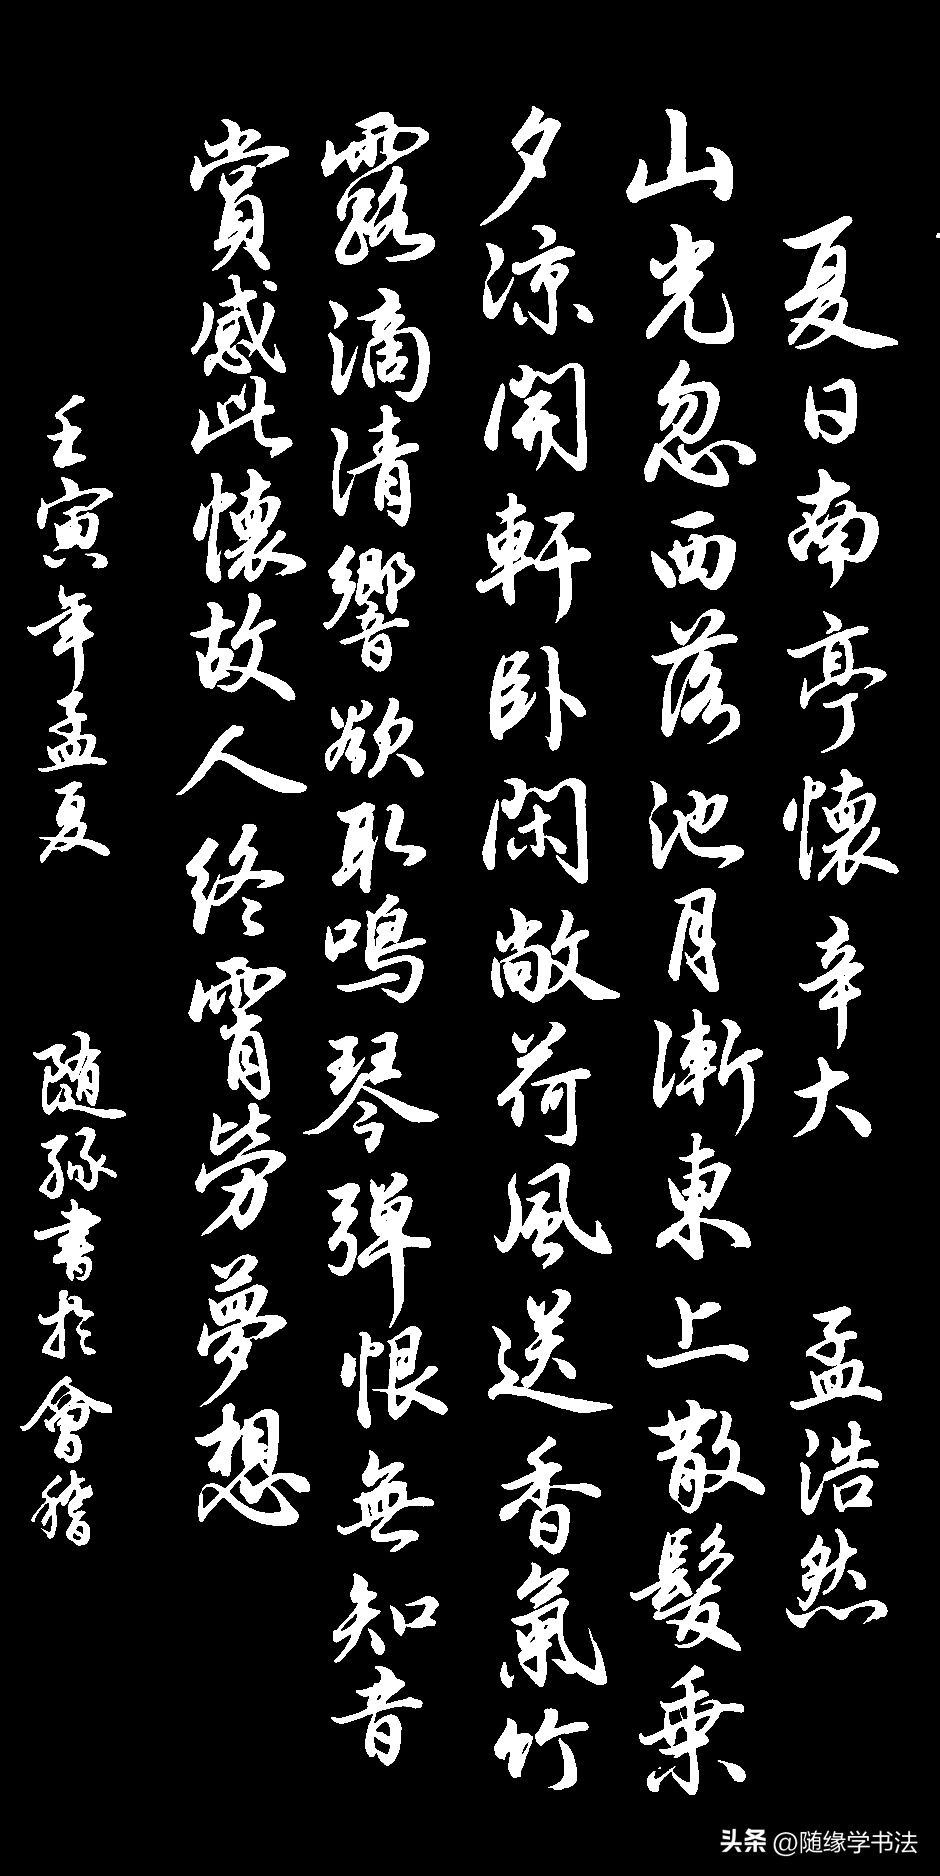 夏日南亭懷辛大 孟浩然
山光忽西落池月漸東上散髮乗
夕涼開軒卧閑敞荷風送香氣竹
露滴清響欲取鳴琴弾恨無知音
賞感此懷故人終霄勞夢想
壬寅年孟夏 随緣書於會稽
头条 @随缘学书法